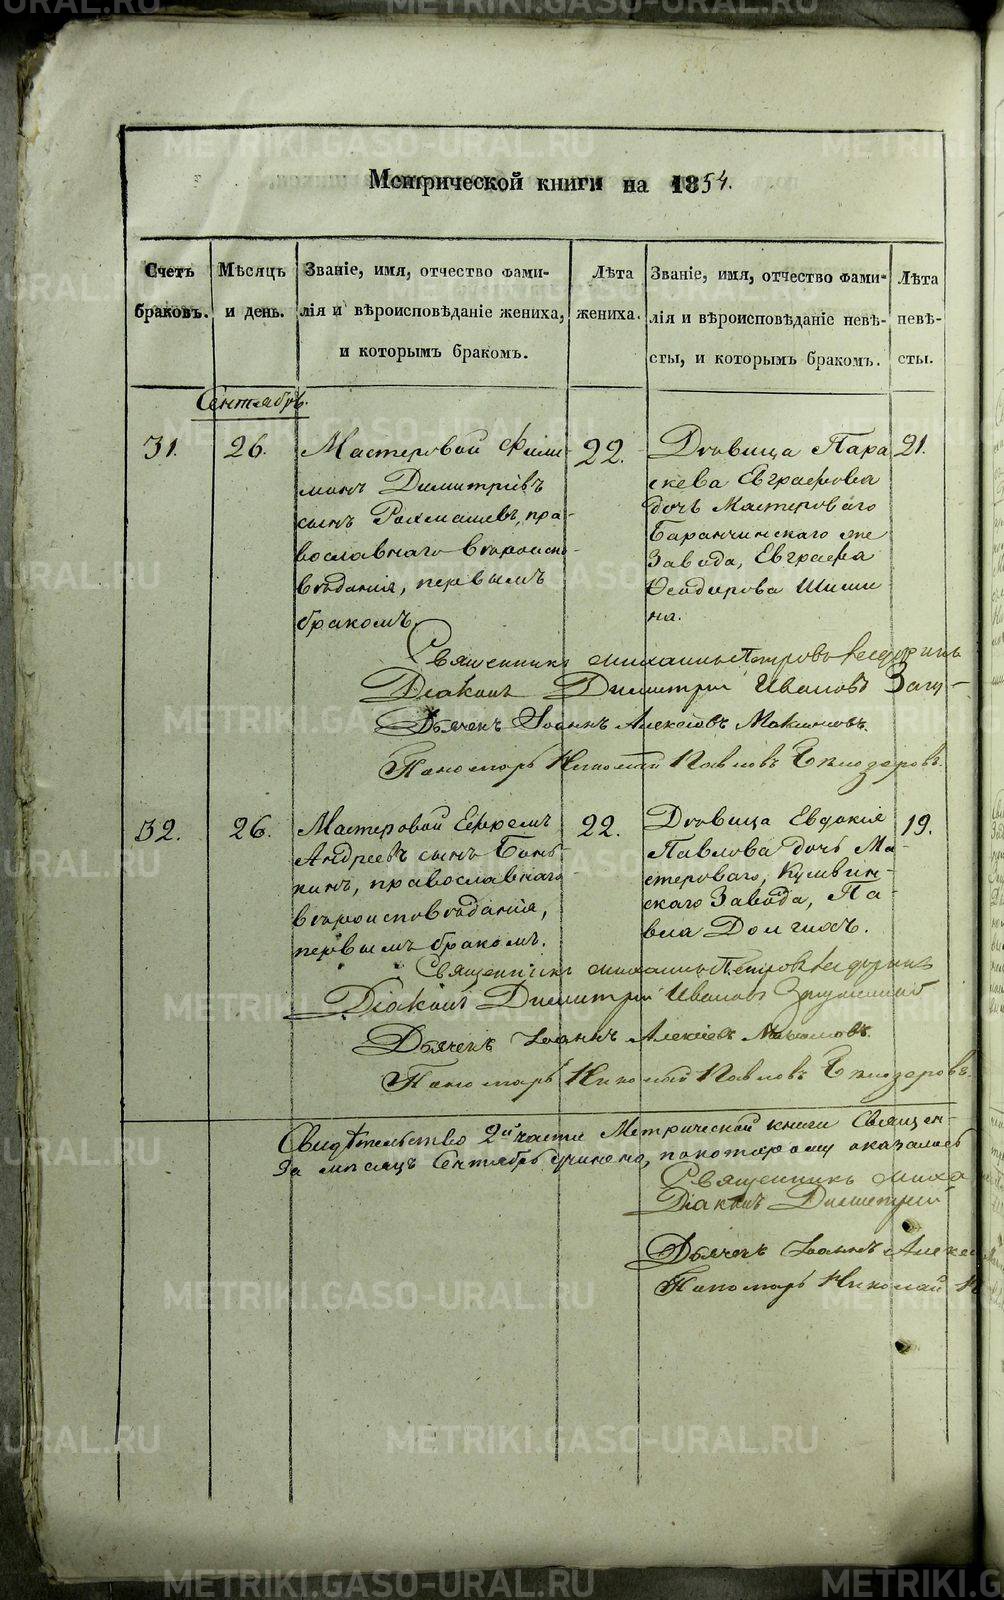 Метрической книги на 1854.
Счетъ браковъ.
Мѣсяцъ и день.
Званіе, имя, отчество фами-
лія и вѣроисповѣданіе жениха,
и которымъ бракомъ.
Лѣта
жениха.
Званіе, имя, отчество фами-
лія и вѣроисповѣданіе невѣ-
сты, и которымъ бракомъ.
Лѣта
невѣ-
сты.
Сентябрь.
31.
26.
Мастеровой Фили-
монъ Димитріевъ
сынъ Рахмашевъ, пра-
вославнаго вѣроиспо-
вѣданія, первымъ
бракомъ
22.
Дѣвица Пара
скева Евграфова
дочь Мастероваго
Баранчинскаго же
Завода, Евграфа
Ѳеодорова Шиши-
на.
21.
Священникъ Михаилъ Петровъ
Діаконъ Димитрій Ивановъ
Дьячекъ Іоаннъ Алексіевъ
Пономарь Николай Павловъ Бѣлозеровъ.
32.
26.
Мастеровой Ефремъ
Андреевъ сынъ Бань-
кинъ, православнаго
вѣроисповѣданія,
первымъ бракомъ.
22.
Дѣвица Евдокія
Павлова дочь Ма-
стероваго, Кушвин-
скаго Завода, Па-
вла Долгихъ.
19.
Священникъ Михаилъ Петровъ
Діаконъ Димитрій Ивановъ
Дьячекъ Іоаннъ Алексіевъ
Пономарь Николай Павловъ Бѣлозеровъ.
Свидѣтельство 2й части Метрической книги Священ-
за мѣсяцъ Сентябрь учинено, по которому оказалось
Священникъ Миха
Діаконъ Димитрій
Дьячекъ Іоаннъ Алекс
Пономарь Николай П
METRIKI.GASO-URAL.RU